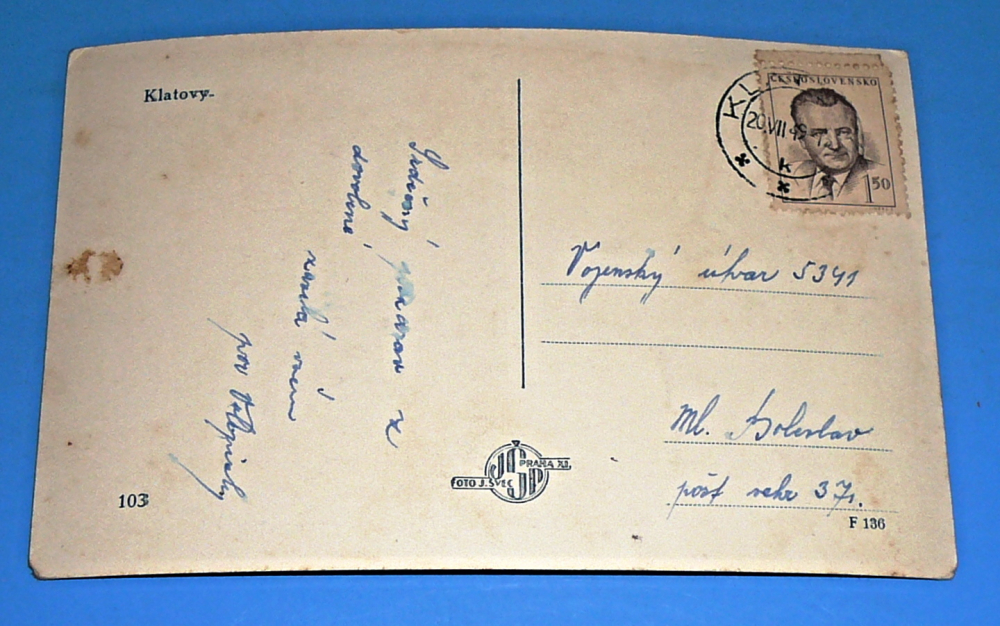 Klatovy.
Srdečný pozdrav z
dovolené
zasílá všem
por
103
FOTO J. ŠVEC
PRAHA XII.
JŠP
ČESKOSLOVENSKO
1 50
KL
20.VII 49-7
k
Vojenský útvar 5341
Ml. Boleslav
pošt schr 37/1.
F 136